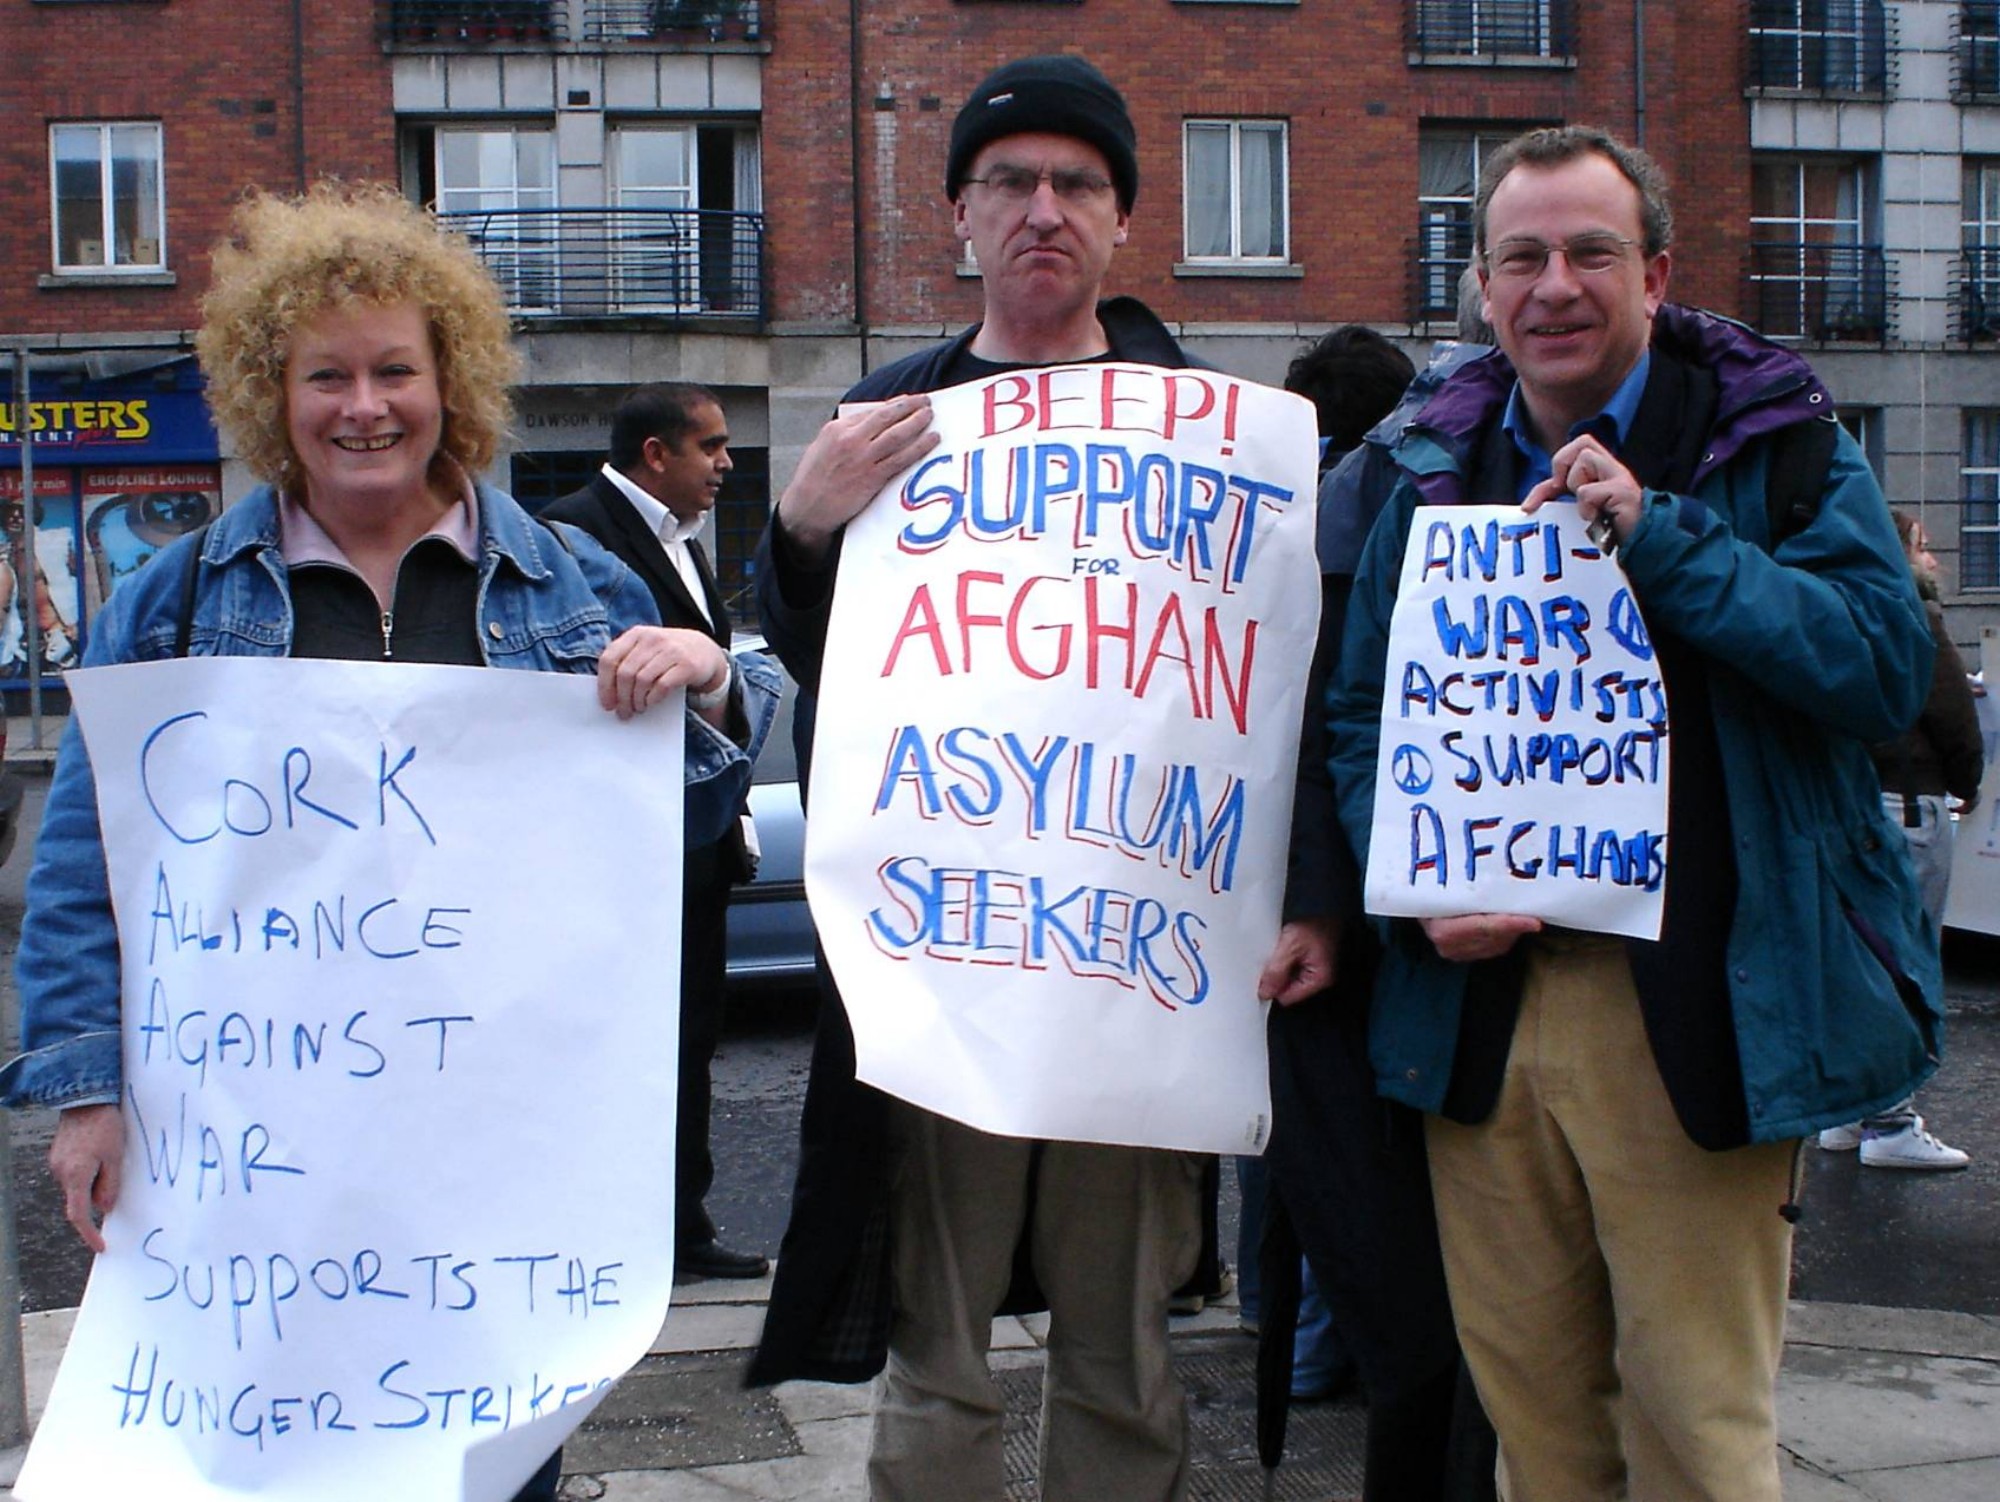 CORK
ALLIANCE
AGAINST
WAR
SUPPORTS THE
HUNGER
BEEP!
SUPPORT
FOR
AFGHAN
ASYLUM
SEEKERS
ANTI-
WAR
ACTIVISTS
SUPPORT
AFGHANS
ERGOLINE LOUNGE
DAWSON